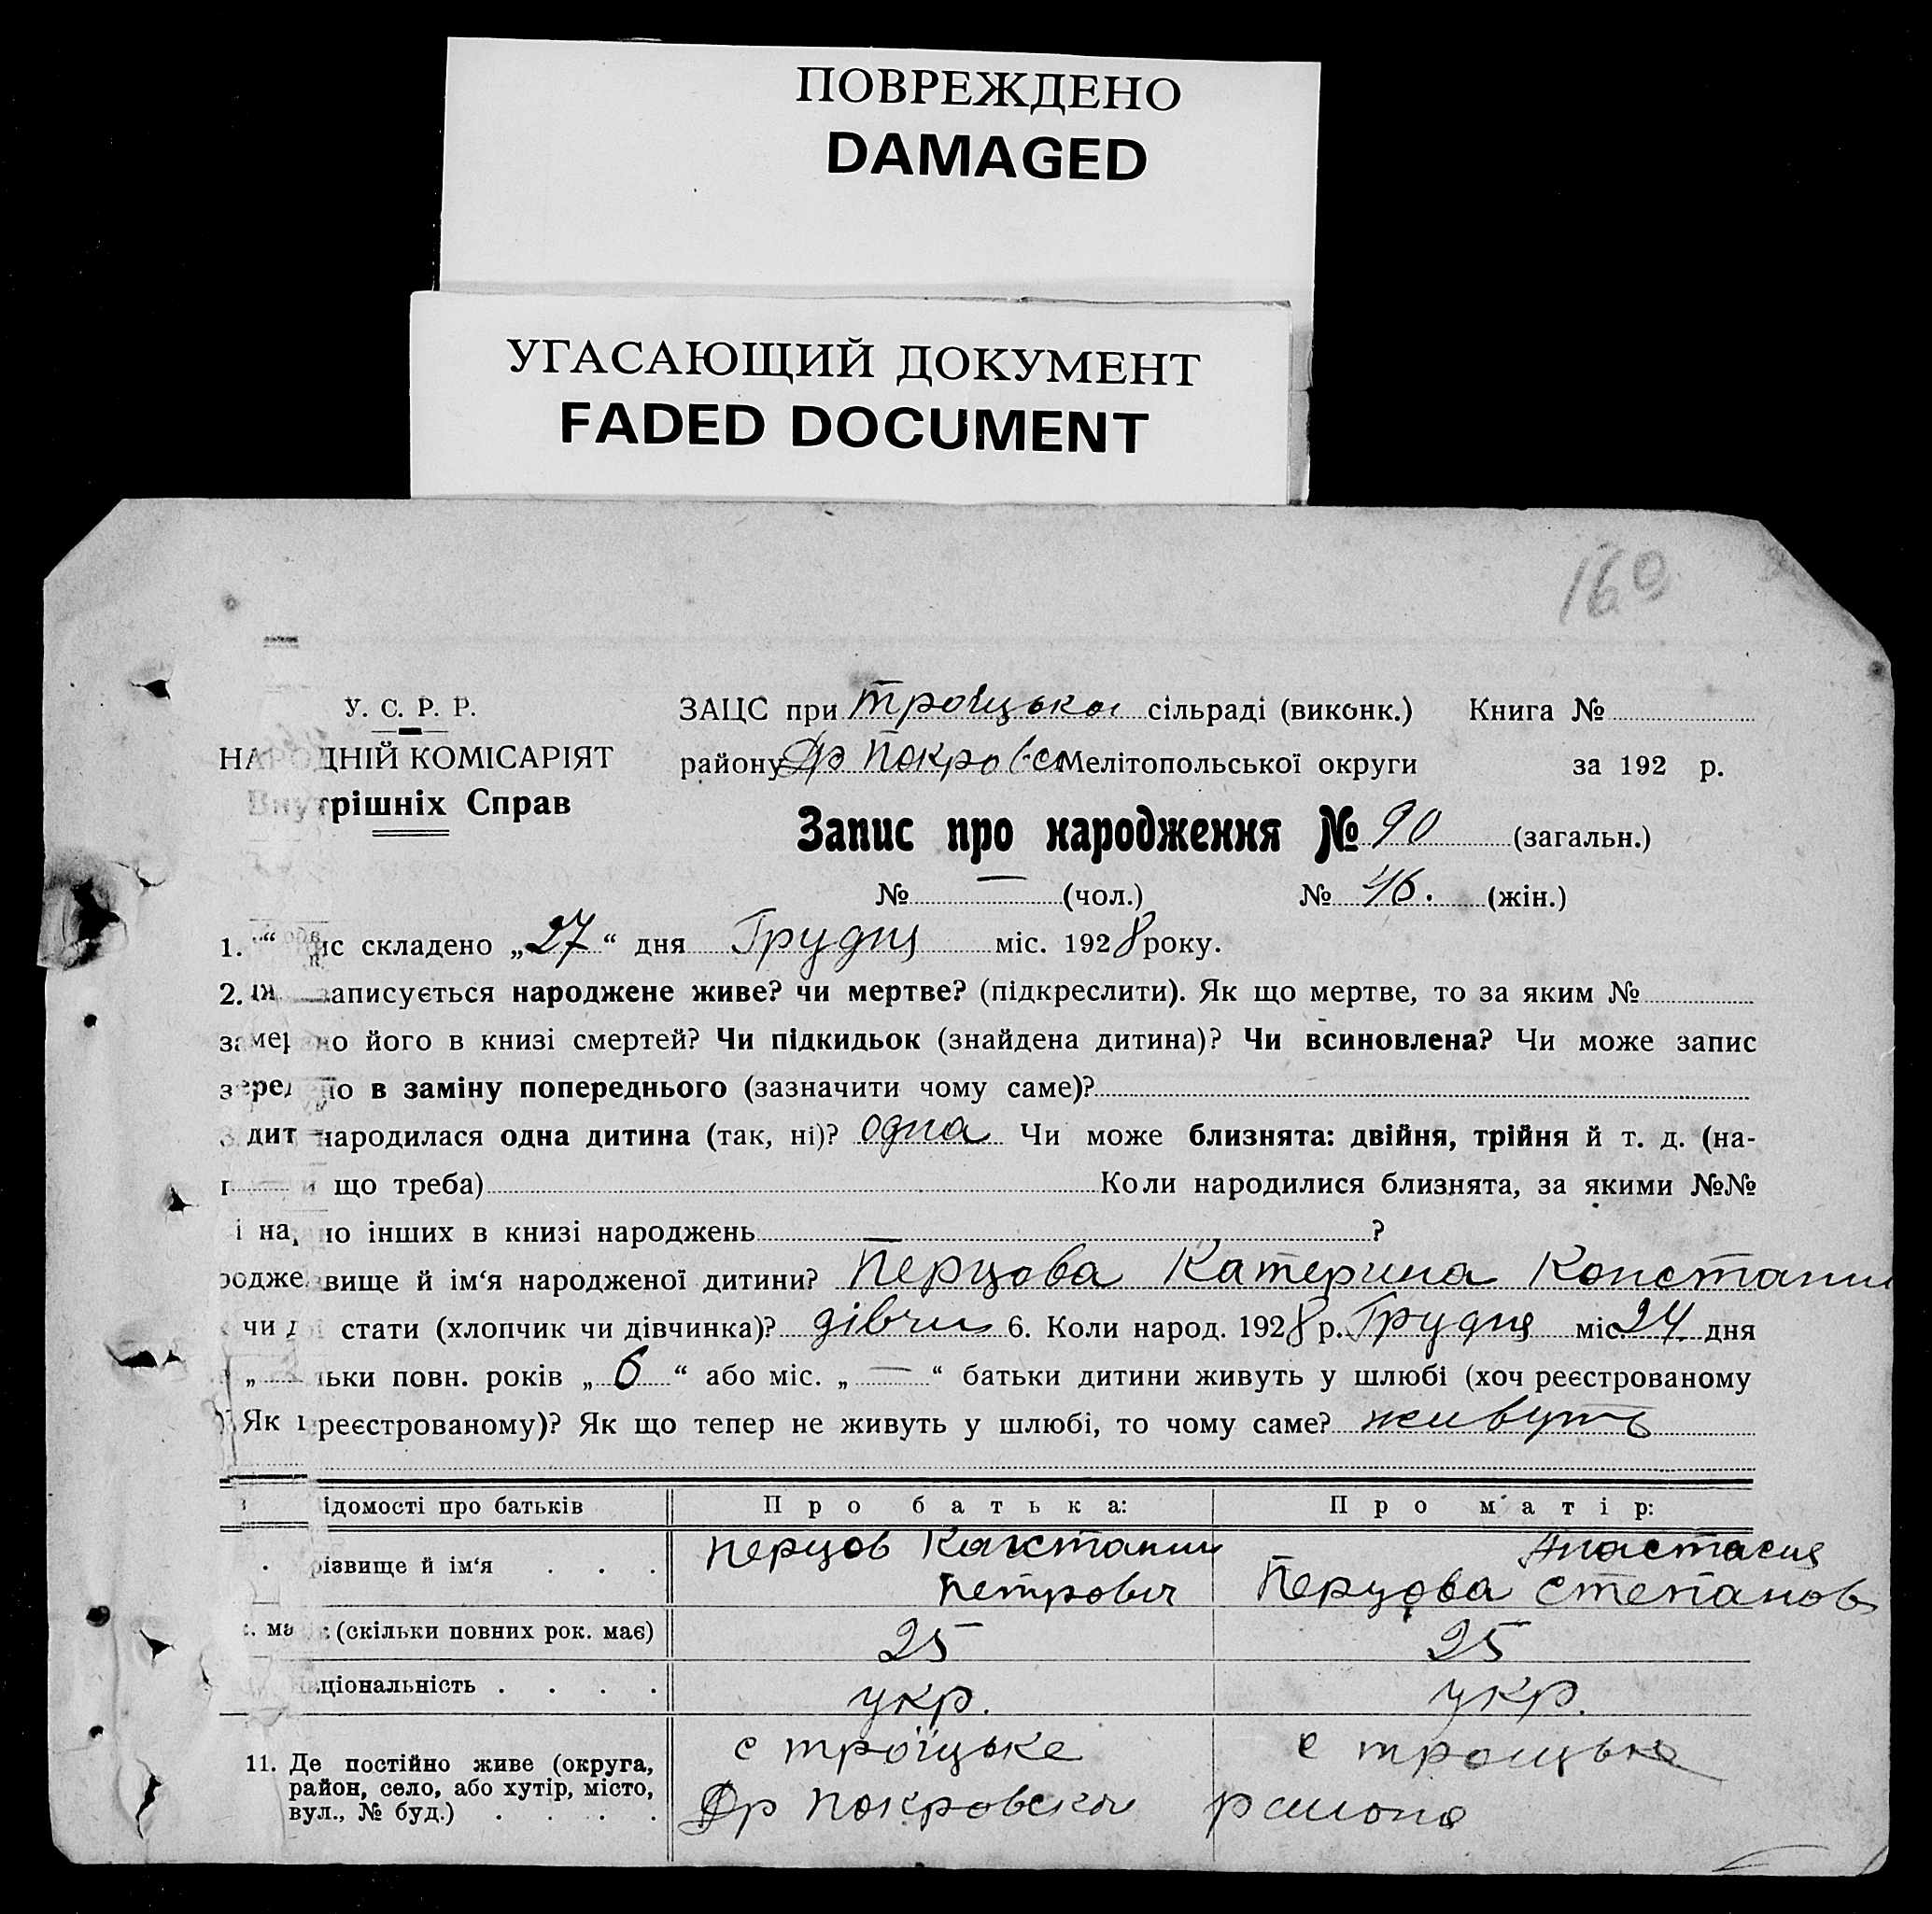 ПОВРЕЖДЕНО
DAMAGED
УГАСАЮЩИЙ ДОКУМЕНТ
FADED DOCUMENT
160
У. С. Р. Р.
НАРОДНІЙ КОМІСАРІЯТ
Внутрішніх Справ
ЗАЦС при Троїцькой сільраді (виконк.) Книга №
району Др Покровск Мелітопольської округи за 192 р.
Запис про народження № 90 (загальн.)
№ — (чол.) № 46. (жін.)
1. ис складено „27“ дня Грудня міс. 1928 року.
2. записується народжене живе? чи мертве? (підкреслити). Як що мертве, то за яким №
но його в книзі смертей? Чи підкидьок (знайдена дитина)? Чи всиновлена? Чи може запис
но в заміну попереднього (зазначити чому саме)?
дит народилася одна дитина (так, ні)? одна Чи може близнята: двійня, трійня й т. д. (на-
що треба) Коли народилися близнята, за якими №№
но інших в книзі народжень ?
вище й ім‘я народженої дитини? Перцова Катерина Константи
чи стати (хлопчик чи дівчинка)? дівчи 6. Коли народ. 1928 р. Грудня міс. 24 дня
„ льки повн. років „6“ або міс. „—“ батьки дитини живуть у шлюбі (хоч реєстрованому
Як реєстрованому)? Як що тепер не живуть у шлюбі, то чому саме? живуть
ідомості про батьків Про батька: Про матір:
різвище й ім‘я . . . Перцов Константин Анастасия
Петрович Перцова Степанов
(скільки повних рок. має) 25 25
ціональність . . . . укр. укр.
11. Де постійно живе (округа, район, село, або хутір, місто, вул., № буд.) . . . .
с Троїцьке с Троицьке
Др Покровской району